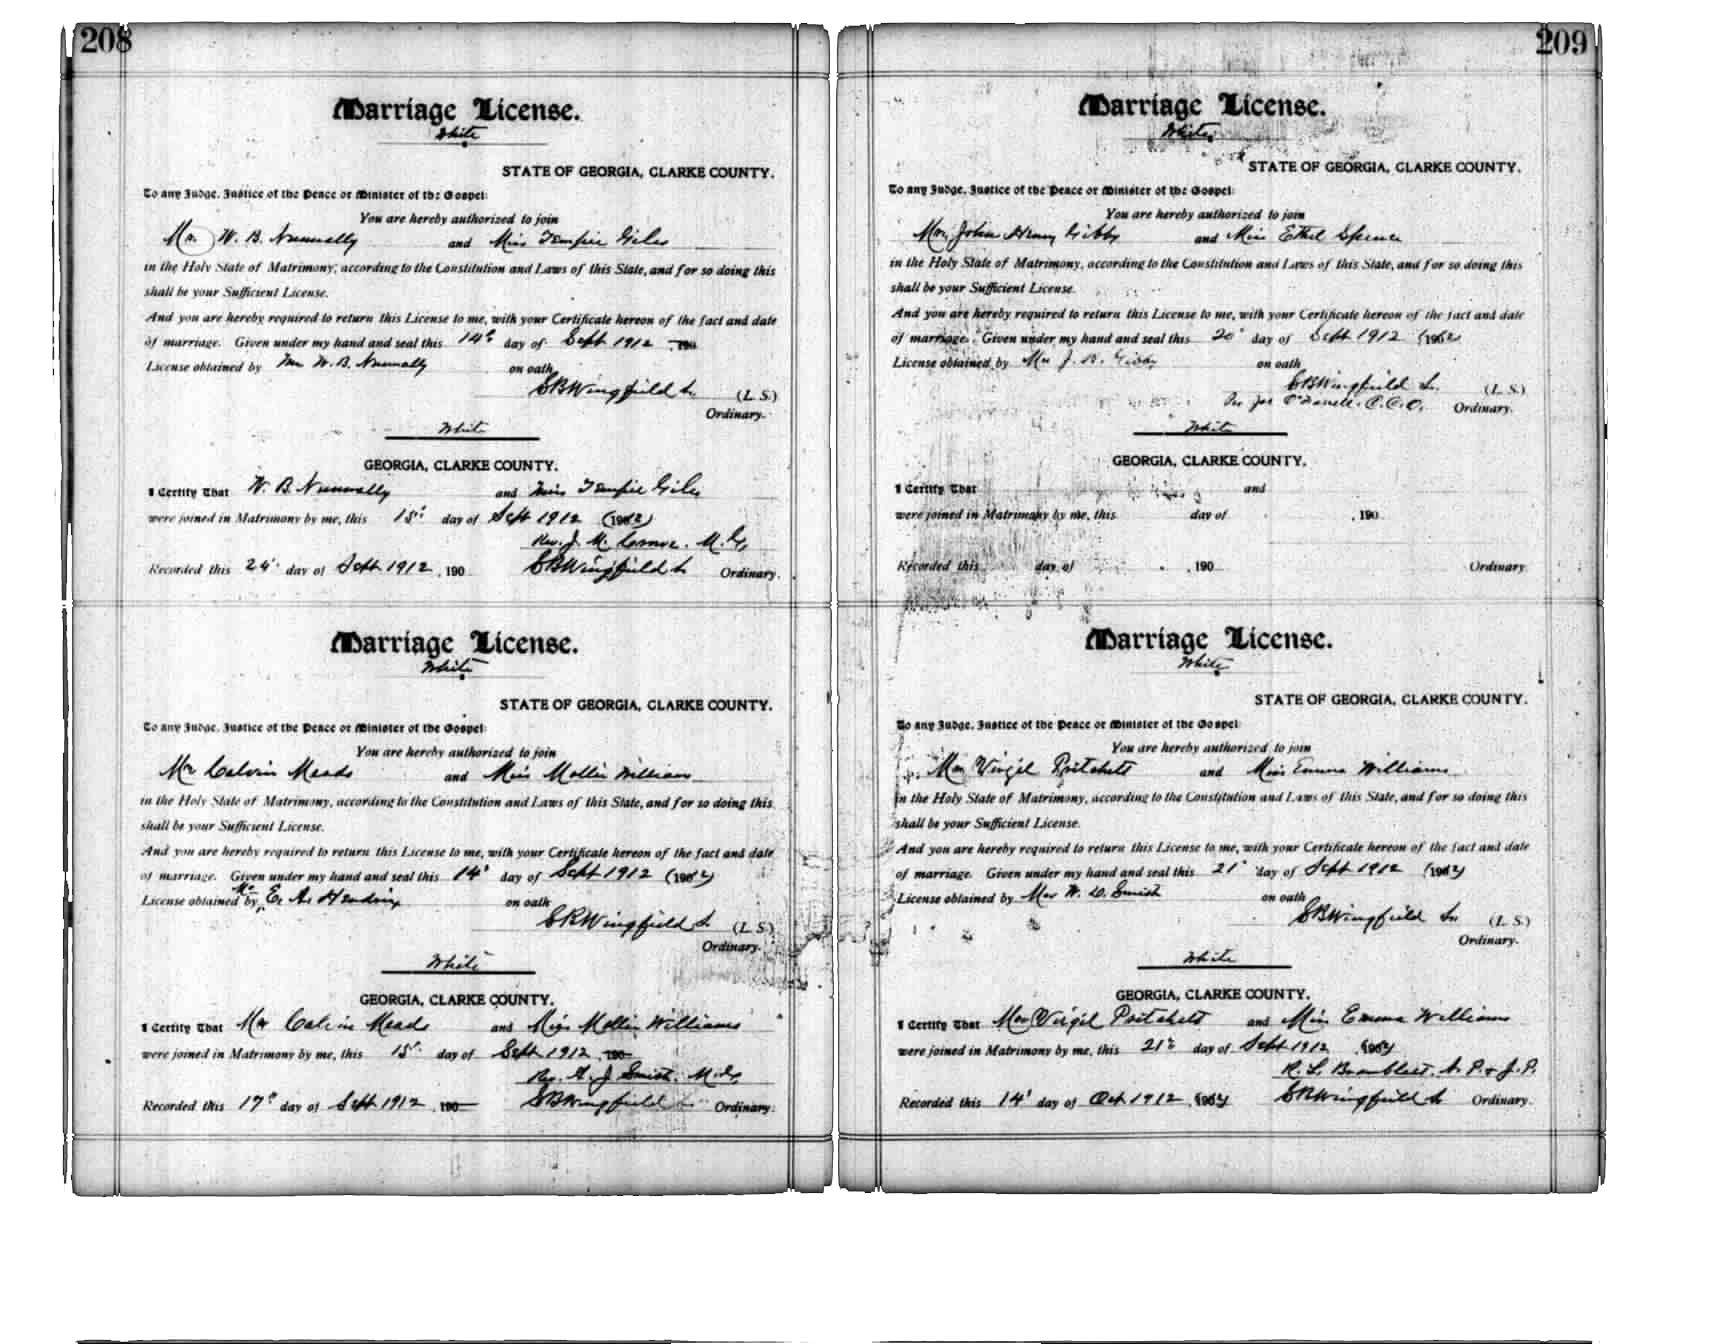 208
Marriage License.
White
STATE OF GEORGIA, CLARKE COUNTY.
To any Judge, Justice of the Peace or Minister of the Gospel:
You are hereby authorized to join
Mr. W. B. Nunnally and Miss Tempie Giles
in the Holy State of Matrimony, according to the Constitution and Laws of this State, and for so doing this
shall be your Sufficient License.
And you are hereby required to return this License to me, with your Certificate hereon of the fact and date
of marriage. Given under my hand and seal this 14 day of Sept 1912 190
License obtained by Mr W. B. Nunnally on oath
SBWingfield (L. S.)
Ordinary.
White
GEORGIA, CLARKE COUNTY.
I Certify That W. B. Nunnally and Miss Tempie Giles
were joined in Matrimony by me, this 15 day of Sept 1912
Rev. J. M. M. G.
Recorded this 24 day of Sept 1912, 190 SBWingfield Ordinary.
Marriage License.
White
STATE OF GEORGIA, CLARKE COUNTY.
To any Judge, Justice of the Peace or Minister of the Gospel:
You are hereby authorized to join
Mr Calvin Meads and Miss Mollie Williams
in the Holy State of Matrimony, according to the Constitution and Laws of this State, and for so doing this
shall be your Sufficient License.
And you are hereby required to return this License to me, with your Certificate hereon of the fact and date
of marriage. Given under my hand and seal this 14' day of Sept 1912
License obtained by Mr E. A. Hendrix on oath
SBWingfield (L. S.)
Ordinary.
White
GEORGIA, CLARKE COUNTY.
I Certify That Mr Calvin Meads and Miss Mollie Williams
were joined in Matrimony by me, this 15' day of Sept 1912, 190
Rev. J. Smith. M. G.
Recorded this 17 day of Sept 1912, 190 SBWingfield Ordinary.
209
Marriage License.
White
STATE OF GEORGIA, CLARKE COUNTY.
To any Judge, Justice of the Peace or Minister of the Gospel:
You are hereby authorized to join
Mr. John Henry Gibby and Miss Ethel Spence
in the Holy State of Matrimony, according to the Constitution and Laws of this State, and for so doing this
shall be your Sufficient License.
And you are hereby required to return this License to me, with your Certificate hereon of the fact and date
of marriage. Given under my hand and seal this 20' day of Sept 1912
License obtained by Mr J. Gibby on oath
SBWingfield (L. S.)
Ordinary.
White
GEORGIA, CLARKE COUNTY.
I Certify That and
were joined in Matrimony by me, this day of , 190
Recorded this day of , 190 Ordinary.
Marriage License.
White
STATE OF GEORGIA, CLARKE COUNTY.
To any Judge, Justice of the Peace or Minister of the Gospel:
You are hereby authorized to join
Mr Virgil Pritchett and Miss Emma Williams
in the Holy State of Matrimony, according to the Constitution and Laws of this State, and for so doing this
shall be your Sufficient License.
And you are hereby required to return this License to me, with your Certificate hereon of the fact and date
of marriage. Given under my hand and seal this 21' day of Sept 1912
License obtained by Mr W. D. Smith on oath
SBWingfield (L. S.)
Ordinary.
White
GEORGIA, CLARKE COUNTY.
I Certify That Mr Virgil Pritchett and Miss Emma Williams
were joined in Matrimony by me, this 21 day of Sept 1912
R. L. N. P. & J. P.
Recorded this 14' day of Oct 1912, SBWingfield Ordinary.